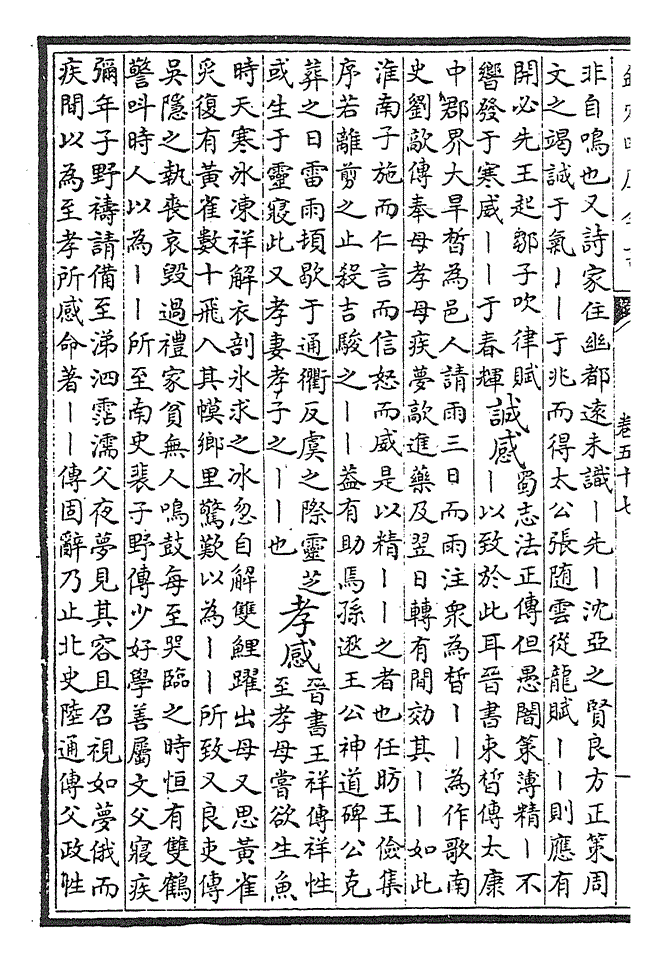 非自鳴也又詩家住幽都遠未識丨先丨沈亞之賢良方正策周
文之竭誠于氣丨丨于兆而得太公張随雲從龍賦丨丨則應有
開必先王起鄒子吹律賦
響發于寒威丨丨于春輝
誠感
蜀志法正傳但愚闇策薄精丨不
丨以致於此耳晉書束晳傳太康
中郡界大旱晳為邑人請雨三日而雨注衆為晳丨丨為作歌南
史劉歊傳奉母孝母疾夢歊進藥及翌日轉有間効其丨丨如此
淮南子施而仁言而信怒而威是以精丨丨之者也任昉王儉集
序若離剪之止殺吉駿之丨丨葢有助焉孫逖王公神道碑公克
葬之日雷雨頓歇于通衢反虞之際靈芝
或生于靈寢此又孝妻孝子之丨丨也
孝感
晉書王祥傳祥性
至孝母嘗欲生魚
時天寒氷凍祥解衣剖氷求之氷忽自解雙鯉躍出母又思黃雀
炙復有黃雀數十飛入其幙鄉里驚歎以為丨丨所致又良吏傳
吳隱之執喪哀毀過禮家貧無人鳴鼓每至哭臨之時恒有雙鶴
警叫時人以為丨丨所至南史裴子野傳少好學善屬文父寢疾
彌年子野禱請備至涕泗霑濡父夜夢見其容旦召視如夢俄而
疾間以為至孝所感命著丨丨傳固辭乃止北史陸通傳父政性
卷五十七